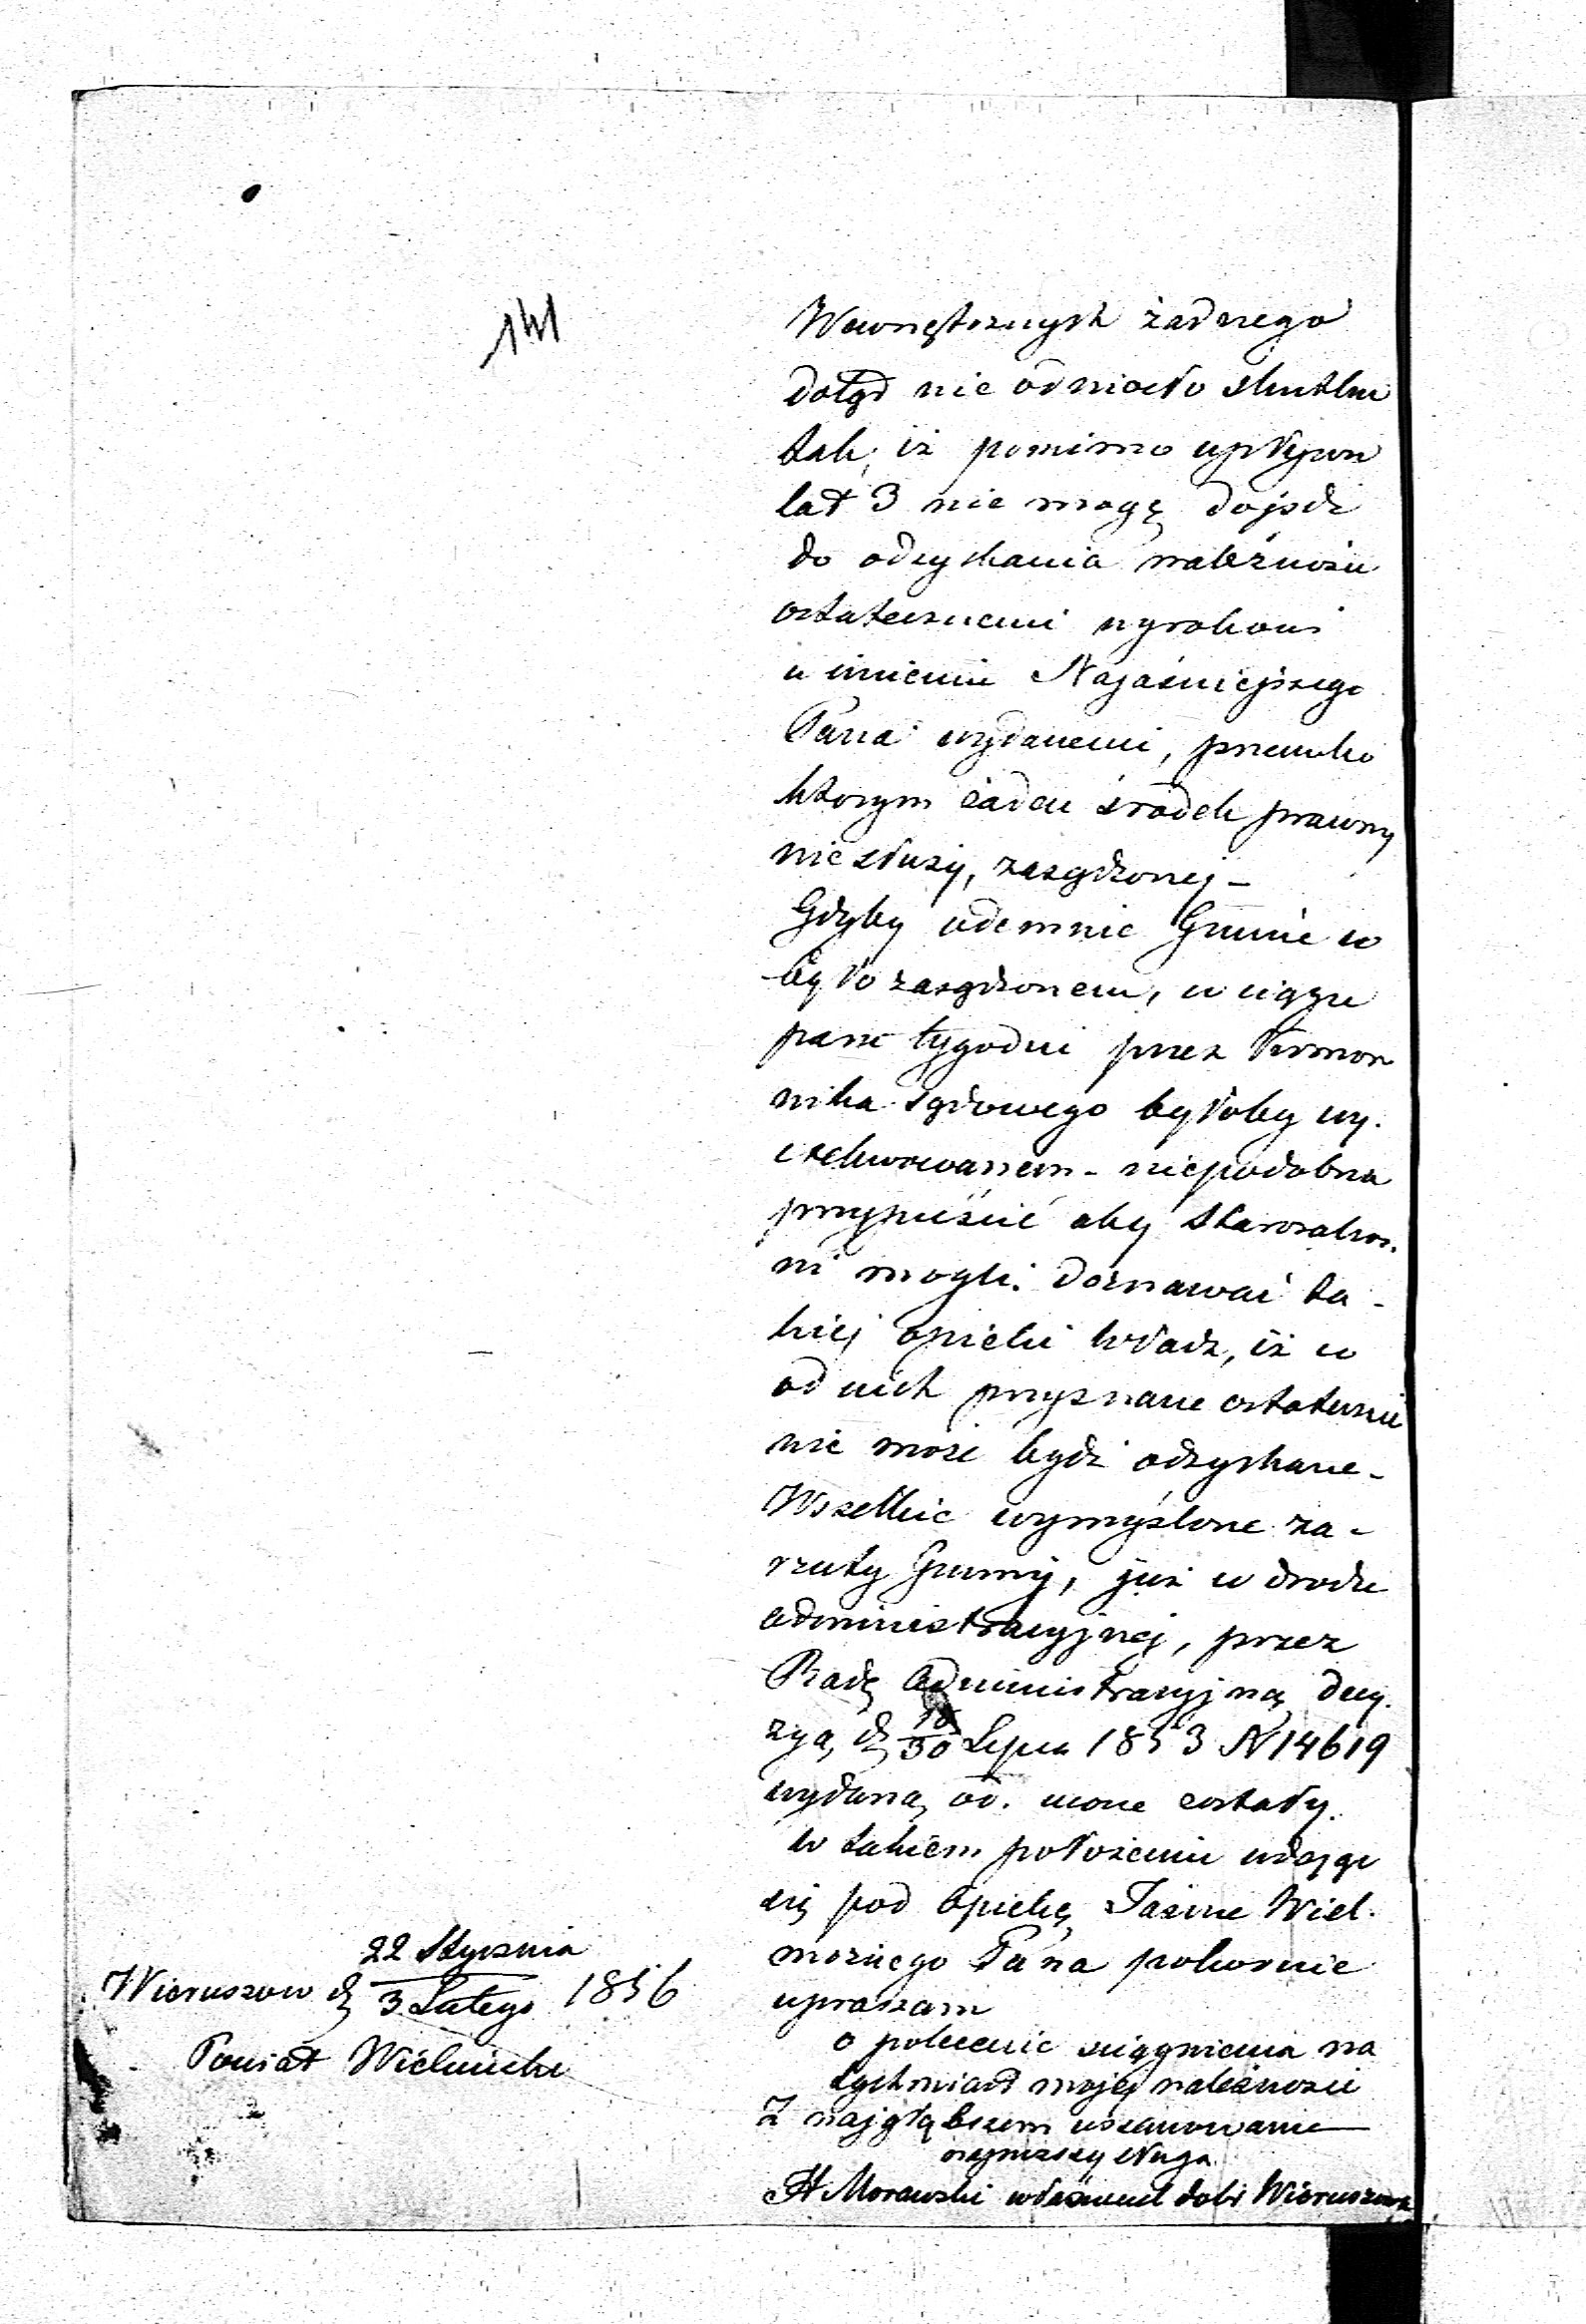 141
Wewnętrznych żadnego
dotąd nie odniosło skutku
tak, iż pomimo upływu
lat 3 nie mogę dojść
do odzyskania należności
ostatecznemi wyrokami
w imieniu Najaśniejszego
Pana wydanemi, przeciwko
którym żaden środek prawny
nie służy, zasądzonej –
Gdyby odemnie Gminie co
było zasądzonem, w ciągu
parę tygodni przez Komor
nika Sądowego byłoby wy-
exekwowanem – niepodobna
przypuścić aby Starozakon-
ni mogli doznawać ta-
kiej opieki Władz, iż co
od nich przyznane ostatecznie
nie może bydź odzyskane –
Wszelkie wymyślone za-
rzuty Gminy, już w drodze
administracyjnej, przez
Radę Administracyjną decy-
zyą, d. 18/30 Lipca 1853 N 14619
wydaną od. zostały.
W takiem położeniu udając
się pod Opiekę Jaśnie Wiel-
możnego Pana pokornie
upraszam
o polecenie ściągnienia na
tychmiast mojej należności
Z najgłębszem uszanowanie
najniższy sługa
H Morawski właściciel dóbr Wieruszowa
22 Stycznia
Wieruszow d. 3 Lutego 1856
Powiat Wieluński